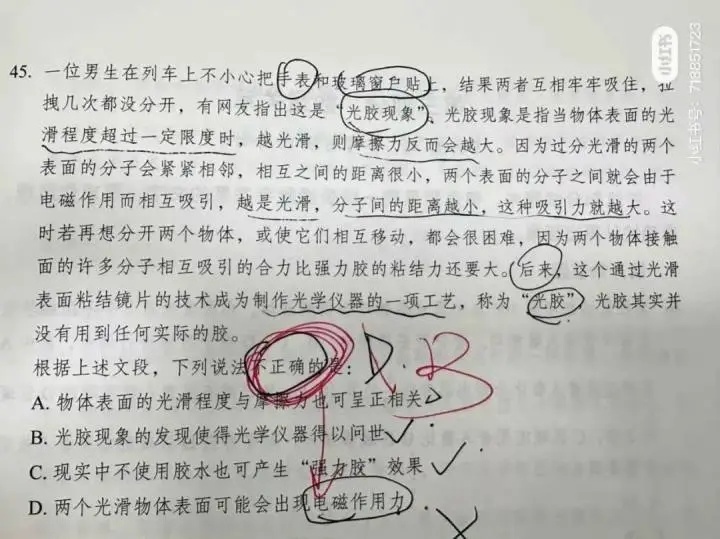 小红书
小红书号：718851723
45. 一位男生在列车上不小心把手表和玻璃窗户贴上，结果两者互相牢牢吸住，拉
拽几次都没分开，有网友指出这是“光胶现象”。光胶现象是指当物体表面的光
滑程度超过一定限度时，越光滑，则摩擦力反而会越大。因为过分光滑的两个
表面的分子会紧紧相邻，相互之间的距离很小，两个表面的分子之间就会由于
电磁作用而相互吸引，越是光滑，分子间的距离越小，这种吸引力就越大。这
时若再想分开两个物体，或使它们相互移动，都会很困难，因为两个物体接触
面的许多分子相互吸引的合力比强力胶的粘结力还要大。后来，这个通过光滑
表面粘结镜片的技术成为制作光学仪器的一项工艺，称为“光胶”，光胶其实并
没有用到任何实际的胶。
根据上述文段，下列说法不正确的是： D B
A. 物体表面的光滑程度与摩擦力也可呈正相关
B. 光胶现象的发现使得光学仪器得以问世
C. 现实中不使用胶水也可产生“强力胶”效果
D. 两个光滑物体表面可能会出现电磁作用力